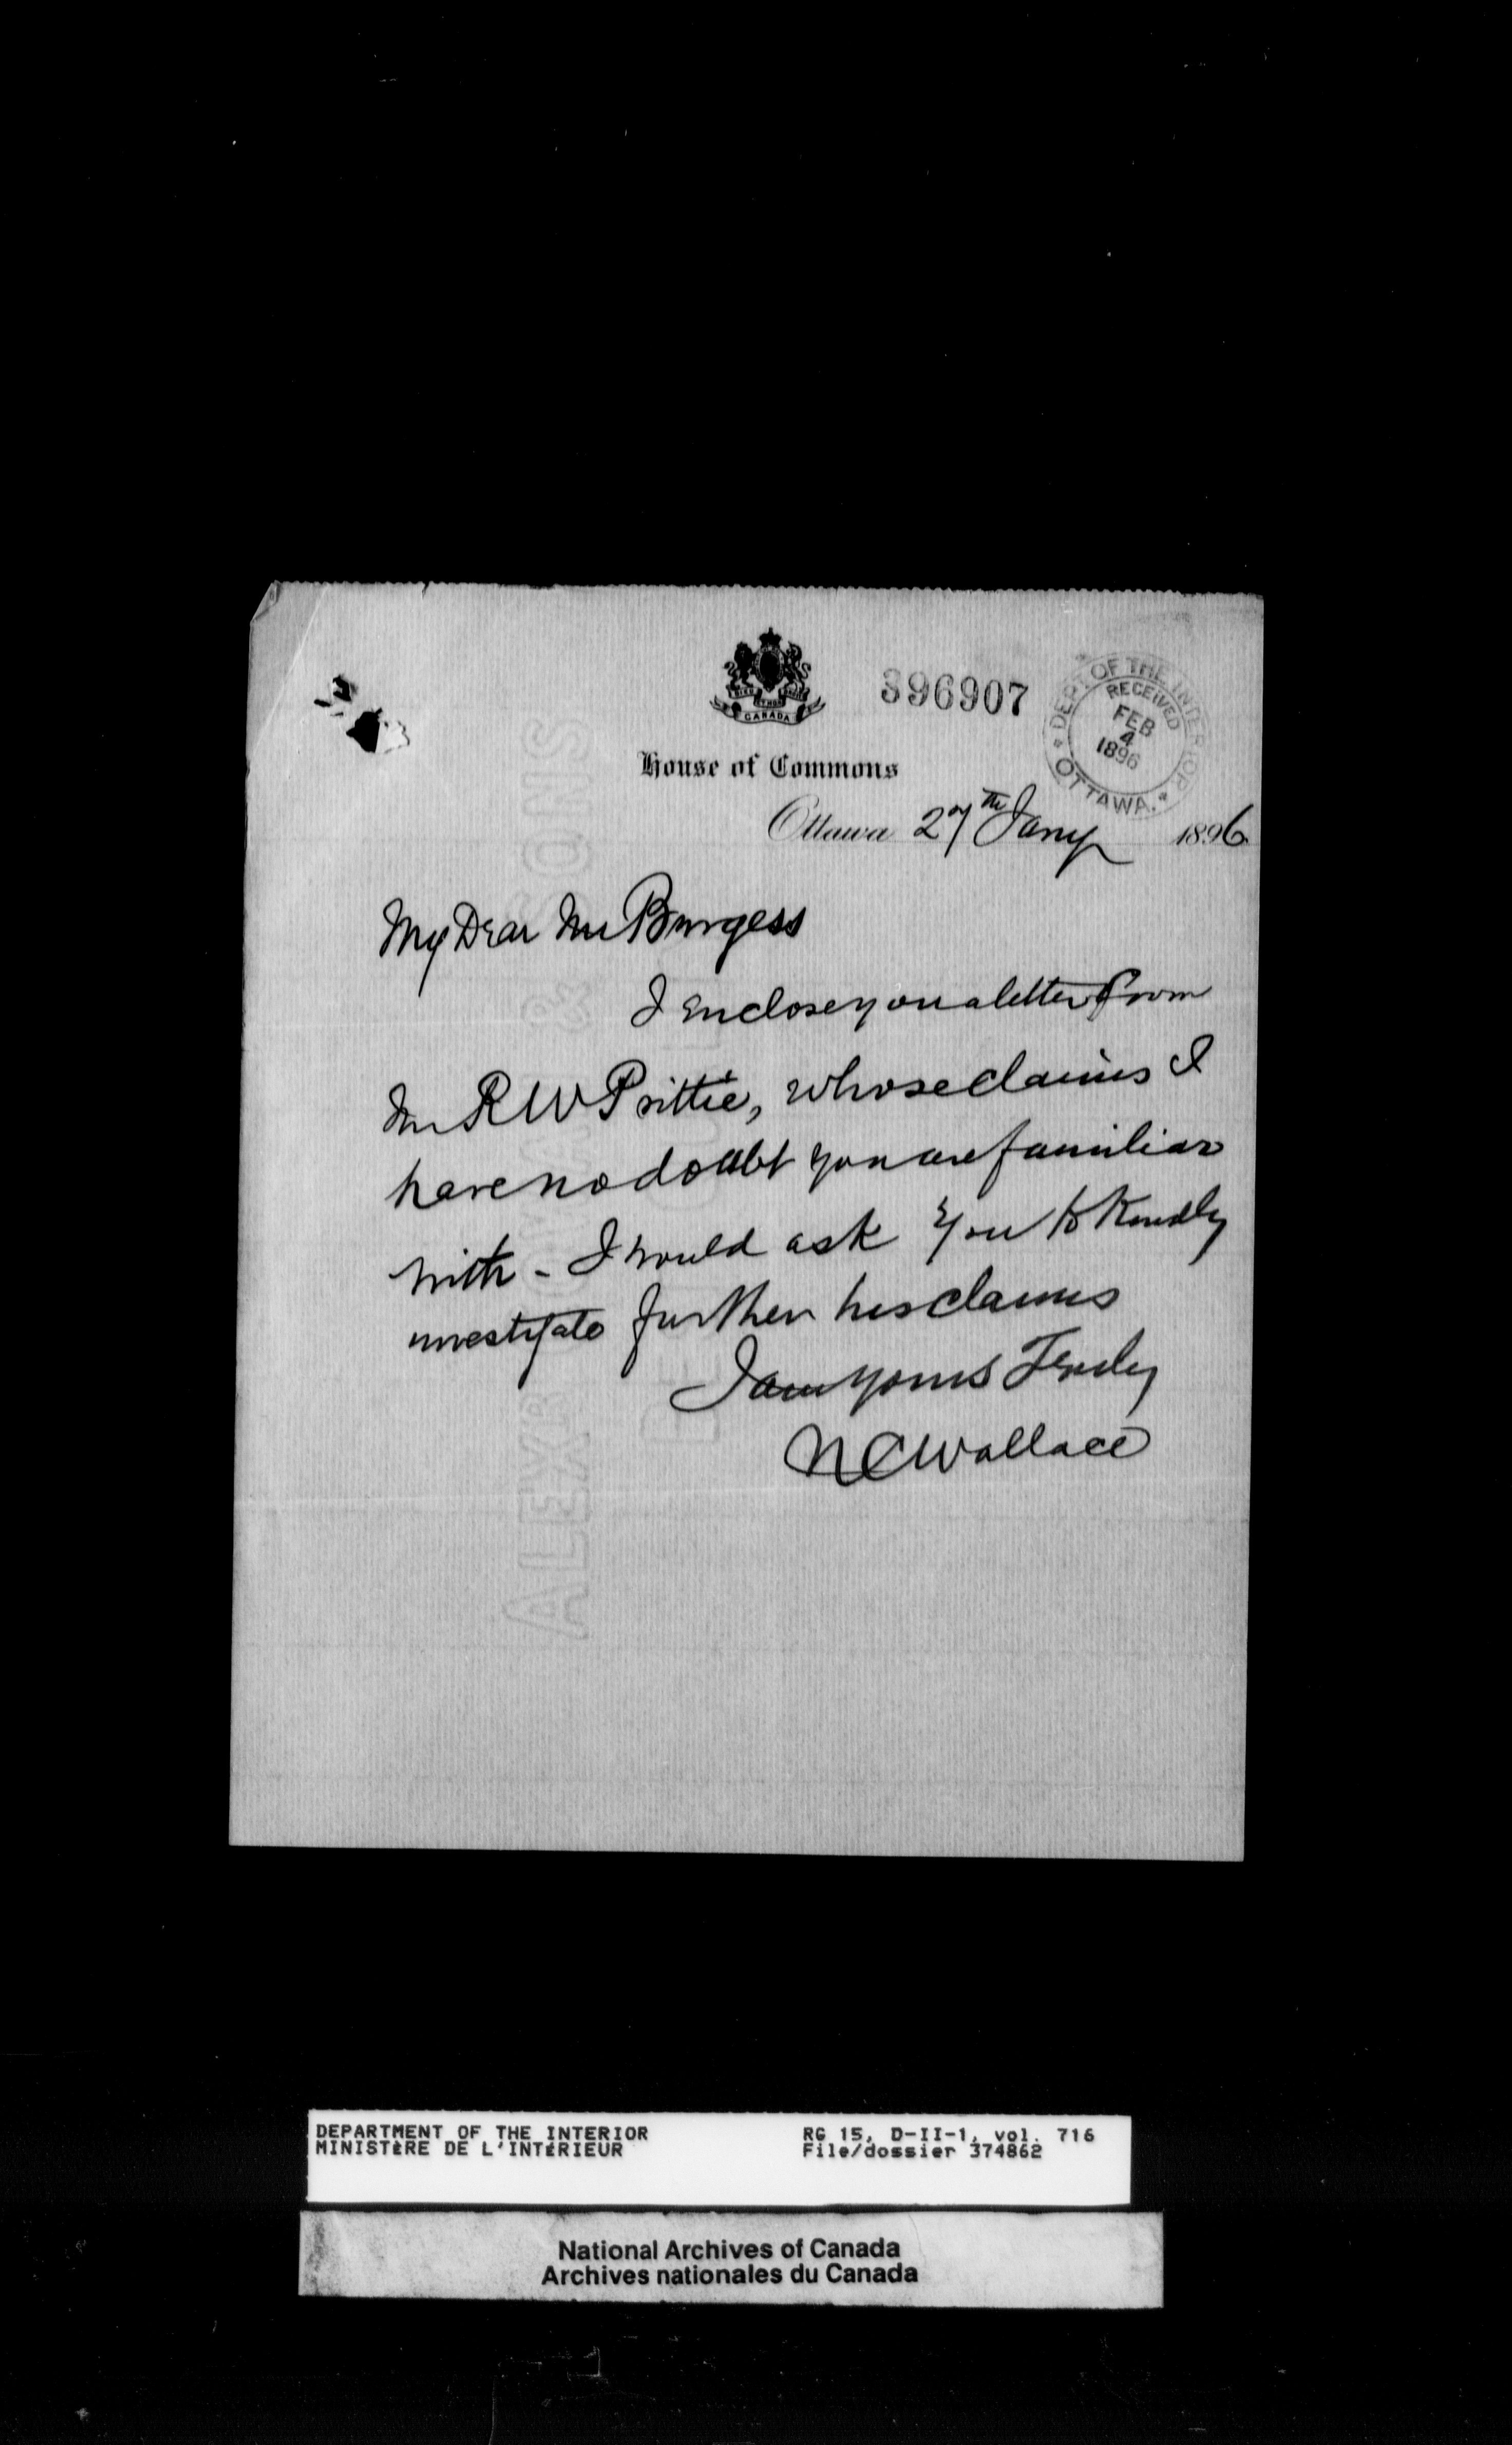 CANADA
396907
DEPT OF THE INTERIOR
RECEIVED
FEB
4
1896
OTTAWA.
House of Commons
Ottawa 27th Jany 1896
My Dear Mr Burgess
I Enclose you a letter from
Mr R W Prittie, whose claims I
have no doubt you are familiar
with - I would ask you to Kindly
investigate further his claims
I am yours Truly
N C Wallace
ALEXR & SONS
DEPARTMENT OF THE INTERIOR RG 15, D-II-1, vol. 716
MINISTÈRE DE L'INTÉRIEUR File/dossier 374862
National Archives of Canada
Archives nationales du Canada